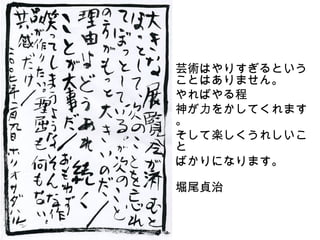 大きな展覧会が済むと
ほっとして、次のことを忘れ
てぼっとしているが次のこと
の方がもっと大きいのだ！
理由はどうあれ続く
ことが大事だ！おもわず
笑ってしまうような、そんな作
品が作りたい。理屈も何もない！
共感だけ！
二〇〇七年 月九日ホリオサダハル
芸術はやりすぎるという
ことはありません。
やればやる程
神が力をかしてくれます
。
そして楽しくうれしいこ
と
ばかりになります。
堀尾貞治